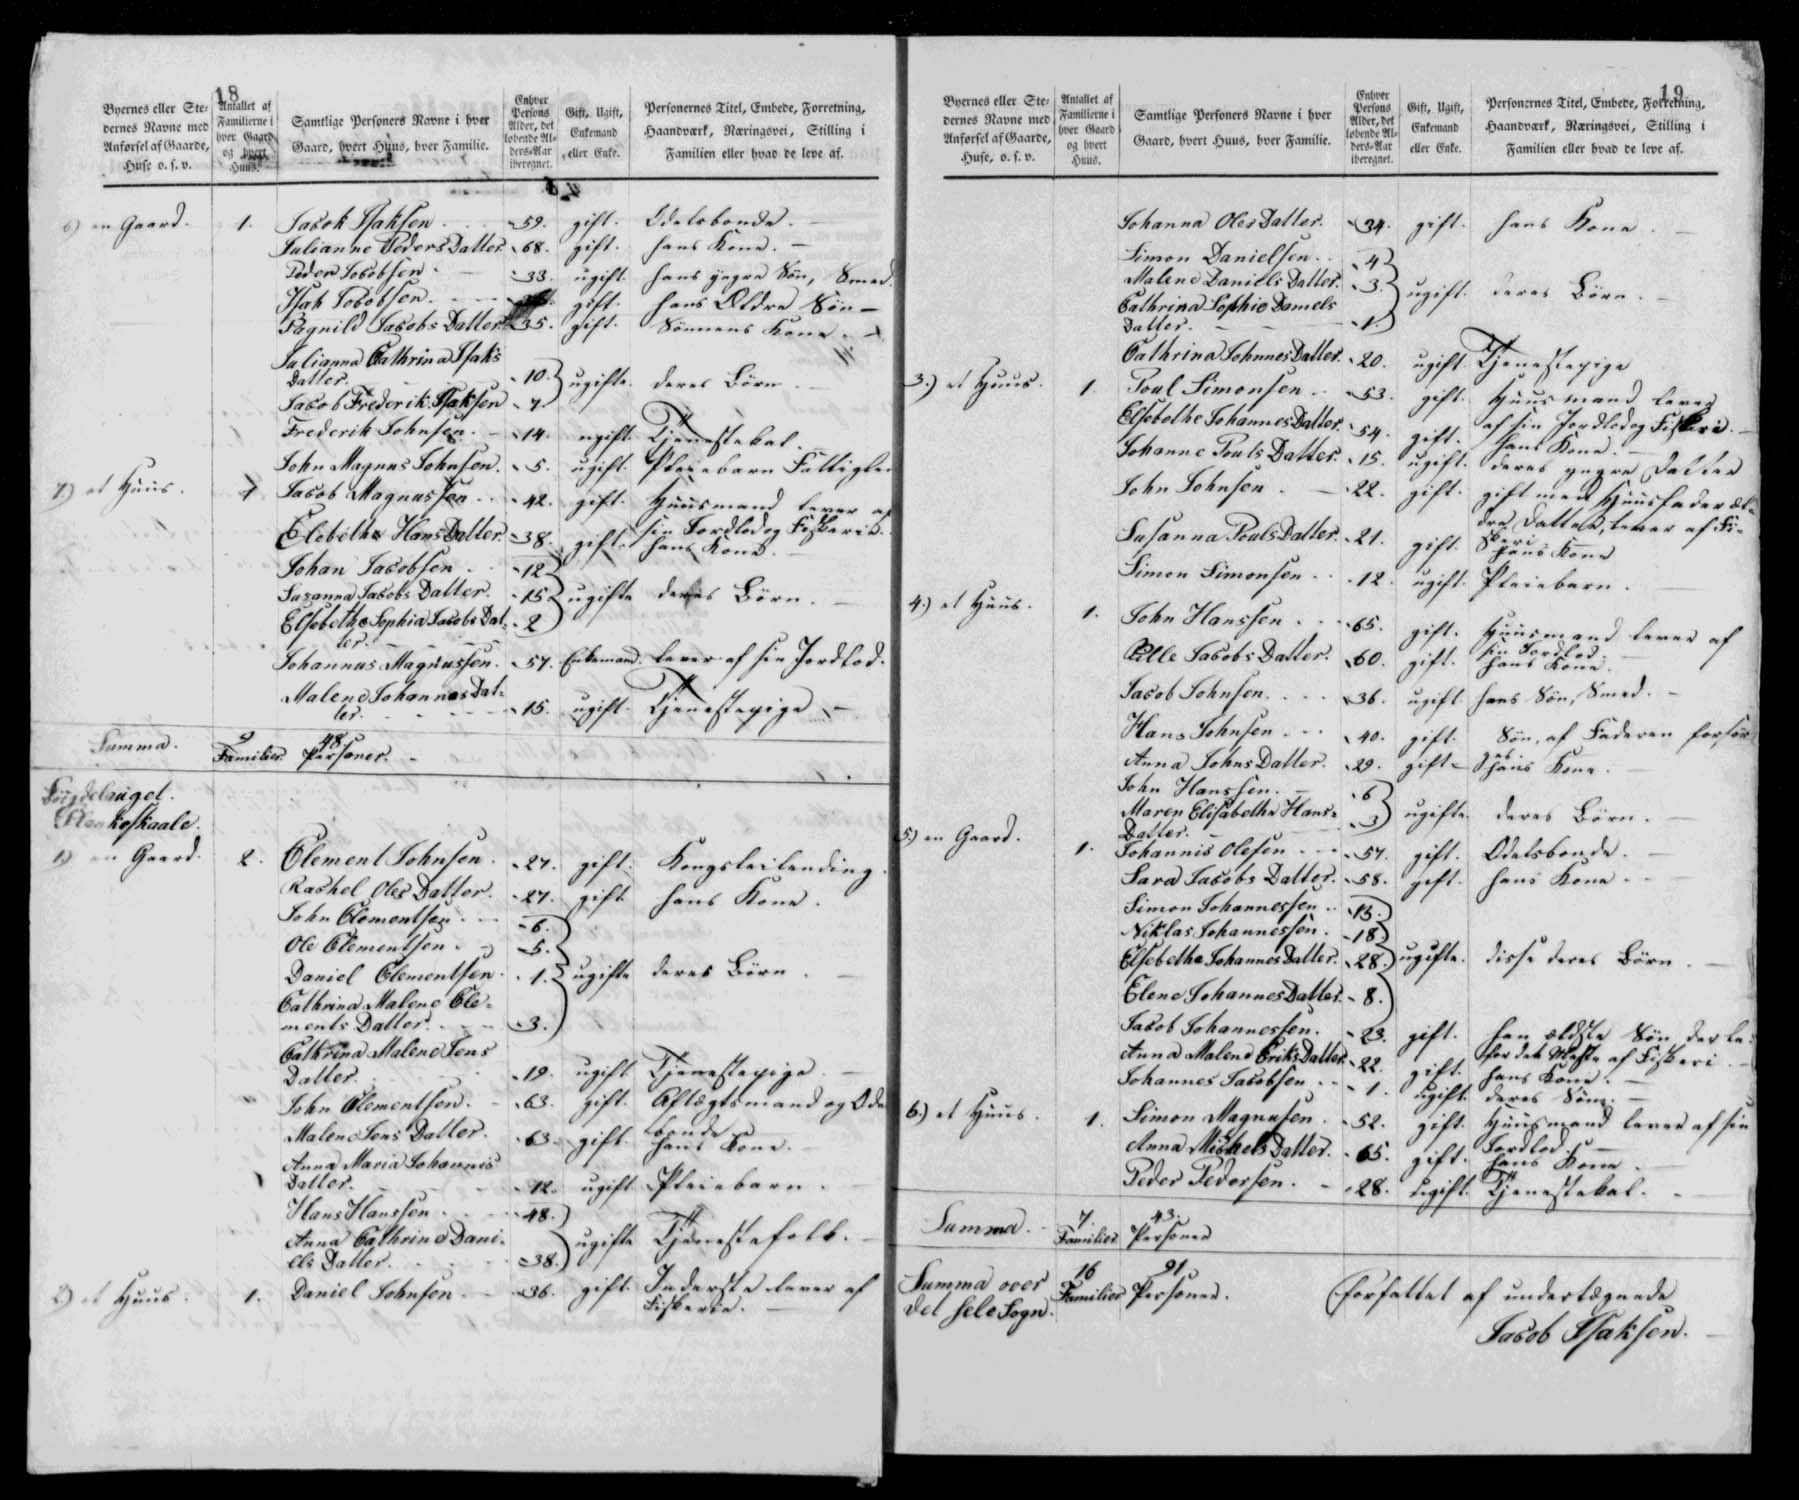 18
Byernes eller Ste-
dernes Navne med
Anførsel af Gaarde,
Huse o. s. v.
Antallet af
Familierne i
hver Gaard
og hvert
Huus.
Samtlige Personers Navne i hver
Gaard, hvert Huus, hver Familie.
Enhver
Persons
Alder, det
løbende Al-
ders-Aar
iberegnet.
Gift, Ugift,
Enkemand
eller Enke.
Personernes Titel, Embede, Forretning,
Haandværk, Næringsvei, Stilling i
Familien eller hvad de leve af.
6) en Gaard. 1. Jacob Isaksen 59. gift. Odelsbonde.
Julianne Peders Datter. 68. gift. hans Kone.
Peder Jacobsen 33. ugift. hans yngre Søn, Smed.
Isak Jacobsen. gift. hans Ældre Søn
Ragnild Jacobs Datter. 35. gift. Sønnens Kone.
Julianna Cathrina Isaks
Datter. 10. ugifte. deres Børn.
Jacob Frederik Isaksen 7.
Frederik Johnsen. 14. ugift. Tjenestekal.
John Magnus Johnsen. 5. ugift. Pleiebarn
7) et Huus. 1 Jacob Magnussen 42. gift. Huusmand lever af
sin Jordlod og Fiskerie.
Elsebetha Hans Datter. 38. gift. hans Kone.
Johan Jacobsen 12
Susanna Jacobs Datter. 15 ugifte deres Børn.
Elsebetha Sophia Jacobs Dat-
ter. 2
Johannus Magnussen. 57. Enkemand. lever af sin Jordlod.
Malene Johannes Dat-
ter. 15. ugift. Tjenestepige
Summa. 9 Familier. 48 Personer.
Bÿgdelauget.
1) en Gaard. 2. Clement Johnsen. 27. gift. Kongsleilending.
Rachel Oles Datter. 27. gift. hans Kone.
John Clementsen. 6.
Ole Clementsen. 5.
Daniel Clementsen. 1. ugifte deres Børn.
Cathrina Malene Cle-
ments Datter. 3.
Cathrina Malene Jens
Datter. 19. ugift. Tjenestepige.
John Clementsen. 63. gift. Aftægtsmand og Odels
bonde
Malene Jens Datter. 63. gift. hans Kone.
Anna Maria Johannis
Datter. 12. ugift. Pleiebarn.
Hans Hanssen 48.
Anna Cathrina Dani-
els Datter. 38. ugifte Tjenestefolk.
2) et Huus. 1. Daniel Johnsen 36. gift. Inderste lever af
Fiskerie.
19
Byernes eller Ste-
dernes Navne med
Anførsel af Gaarde,
Huse, o. s. v.
Antallet af
Familierne i
hver Gaard
og hvert
Huus.
Samtlige Personers Navne i hver
Gaard, hvert Huus, hver Familie.
Enhver
Persons
Alder, det
løbende Al-
ders-Aar
iberegnet.
Gift, Ugift,
Enkemand
eller Enke.
Personernes Titel, Embede, Forretning,
Haandværk, Næringsvei, Stilling i
Familien eller hvad de leve af.
Johanna Oles Datter. 34. gift. hans Kone.
Simon Danielsen. 4
Malene Daniels Datter. 3. ugift. deres Børn.
Cathrina Sophie Daniels
Datter. 1.
Cathrina Johnnes Datter. 20. ugift Tjenestepige
3.) et Huus. 1. Poul Simonsen 53. gift. Huusmand lever
af sin Jordlod og Fiskeri.
Elsebethe Johannes Datter. 54. gift. hans Kone.
Johanne Pouls Datter. 15. ugift. deres yngre Datter
John Johnsen. 22. gift. gift med Huusfader æl-
dre Datter, lever af Fi-
skeri
Susanna Pouls Datter. 21. gift. hans Kone
Simon Simonsen 12. ugift. Pleiebarn.
4.) et Huus. 1. John Hanssen 65. gift. Huusmand lever af
sin Jordlod
Pille Jacobs Datter. 60. gift. hans Kone.
Jacob Johnsen. 36. ugift hans Søn, Smed.
Hans Johnsen 40. gift. Søn, af Faderen forsør
ges.
Anna Johns Datter. 29. gift hans Kone.
John Hanssen. 6
Maren Elisabetha Hans-
Datter. 3 ugifte. deres Børn.
5.) en Gaard. 1. Johannis Olesen 57. gift. Odelsbonde.
Sara Jacobs Datter. 58. gift. hans Kone.
Simon Johannessen 13.
Niklas Johannessen. 18
Elsebetha Johannes Datter. 28. ugifte. disse deres Børn.
Elene Johannes Datter. 8.
Jacob Johannessen. 23. gift. hen ældste Søn der le-
for det Meste af Fiskeri.
Anna Malene Eriks Datter. 22. gift. hans Kone.
Johannes Jacobsen 1. ugift. deres Søn.
6.) et Huus. 1. Simon Magnusen. 52. gift. Huusmand lever af sin
Jordlod.
Anna Michels Datter. 65. gift. hans Kone.
Peder Pedersen. 28. ugift. Tjenestekal.
Summa. 7 Familier 43. Personer
Summa over
det hele Sogn. 16 Familier 91 Personer.
Forfattet af undertægnede
Jacob Isaksen.